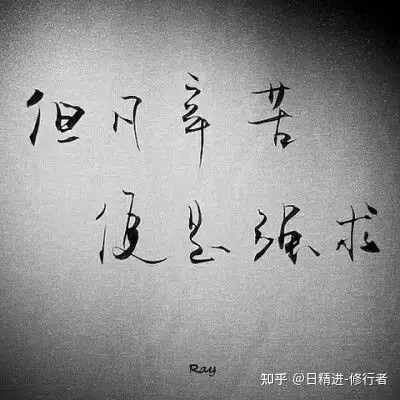 但凡辛苦
便是强求
Ray
知乎 @日精进-修行者